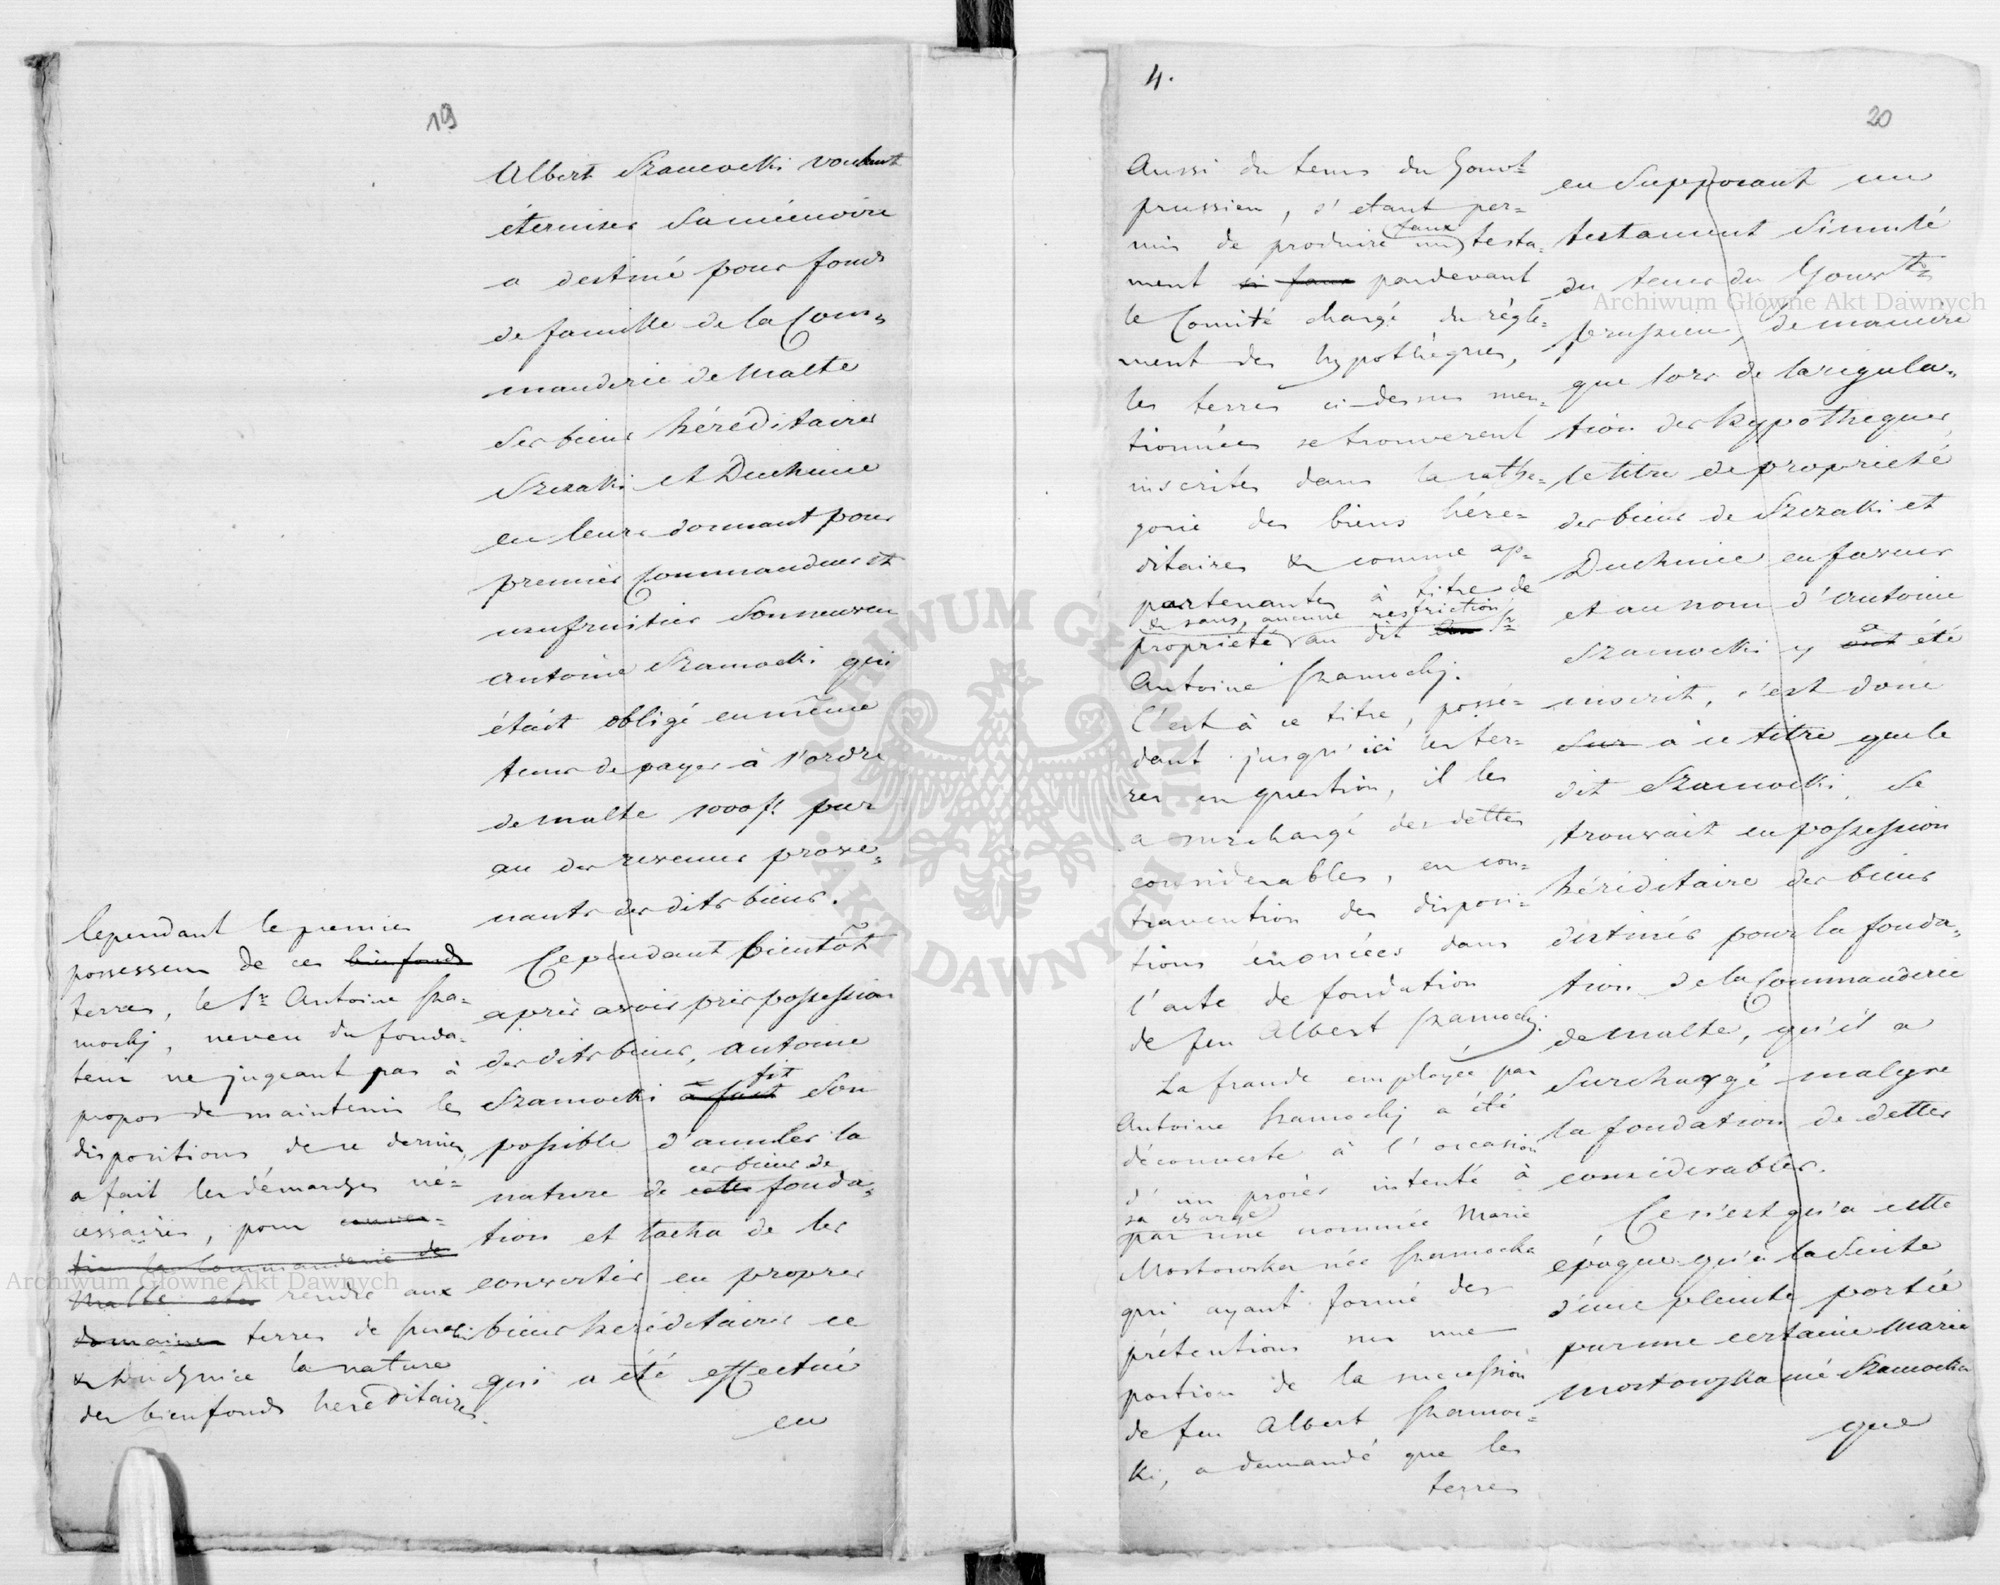 19
Albert Szamocki voulant
éterniser sa mémoire
a destiné pour fonds
de famille de la Com=
manderie de Malte
ses biens héréditaires
Szczaki et Duchnice
en leurs donnant pour
premier Commandeur et
usufruitier son neveu
Antoine Szamocki qui
était obligé en même
tems de payer à l'ordre
de malte 1000 fl. par
an des revenus prove=
nants des dits biens.
Cependant bientôt
après avoir pris possession
des dits biens, Antoine
fit
Szamocki a fait son
possible d'annuler la
ces biens de
nature de cette fonda=
tion et tacha de les
convertir en propres
biens héréditaires ce
qui a été effectué
en
Cependant le premier
possesseur de ces bienfonds
terres, le Sr Antoine Sza=
mocky, neveu du fonda=
teur ne jugeant pas à
propos de maintenir les
dispositions de ce dernier,
a fait les démarches né=
cessaires, pour conver=
tir la Commanderie de
Malte rendre aux
domaines terres de Szczaki
& Duchnice la nature
des bienfonds hereditaires.
4.
20
Aussi du tems du Gouvt
prussien, s'etant per=
faux
mis de produire un testa=
ment si faux pardevant
le Comité chargé du régle=
ment des hypothéques,
les terres ci-dessus men=
tionnées se trouverent
inscrites dans la cathe=
gorie des biens hére=
ditaires & comme ap=
partenantes à titre de
& sans aucune restriction
propriété au dit Sr
Antoine Szamocky.
C'est à ce titre, possé=
dant jusqu'ici les ter=
res en question, il les
a surchargé des dettes
considerables, en con=
travention des disposi=
tions énoncées dans
l'acte de fondation
de feu Albert Szamocky.
La fraude employée par
Antoine Szamocky a été
découverte à l'occasion
d'un procès intenté à
sa charge
par une nommée Marie
Mostowska née Szamocka
qui ayant formé des
prétentions sur une
portion de la succession
de feu Albert Szamoc=
ki, a demandé que les
terres
en supposant un
testament simulé
du tems du Gouvt
prussien, de maniere
que lors de la régula=
tion des hypotheques,
le titre de propriété
des biens de Szczaki et
Duchnice en faveur
et au nom d'Antoine
a
Szamocki y ont été
inscrit, c'est donc
sur à ce titre que le
dit Szamocki se
trouvait en possession
héréditaire des biens
destinés pour la fonda=
tion de la Commanderie
de Malte, qu'il a
surchargé malgré
la fondation de dettes
considerables.
Ce n'est qu'a cette
époque qu'à la suite
d'une plainte portée
par une certaine Marie
Mostowska née Szamocka
que
Archiwum Główne Akt Dawnych
Archiwum Główne Akt Dawnych
ARCHIWUM GŁÓWNE
AKT DAWNYCH